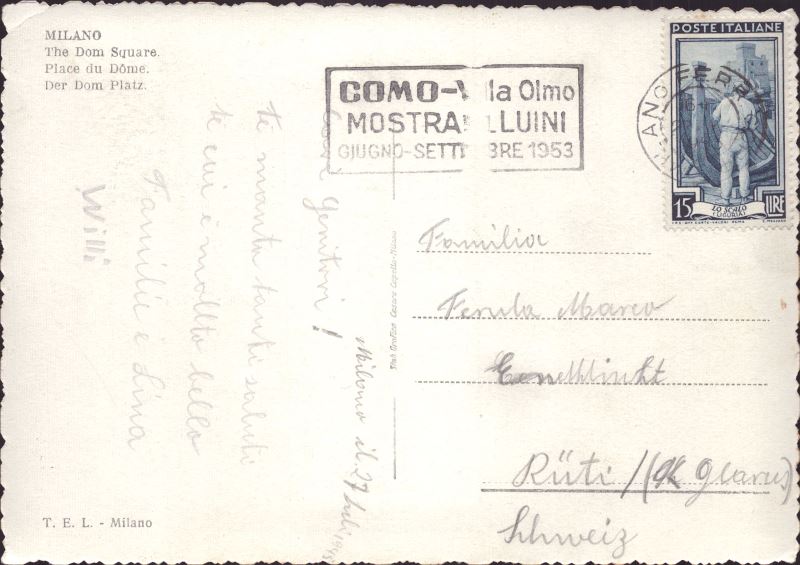 MILANO
The Dom Square.
Place du Dôme.
Der Dom Platz.
COMO-Villa Olmo
MOSTRA LUINI
GIUGNO-SETTEMBRE 1953
POSTE ITALIANE
MILANO FERR
15 LIRE
LO SCALO
Milano il 27 Luli 1953
Cari genitori!
ti manta tanti saluti
ti cui è mollto bello
Familie e Lina
Willi
Familia
Ferula Marco
Rüti / (Gk Glarus)
Schweiz
T. E. L. - Milano